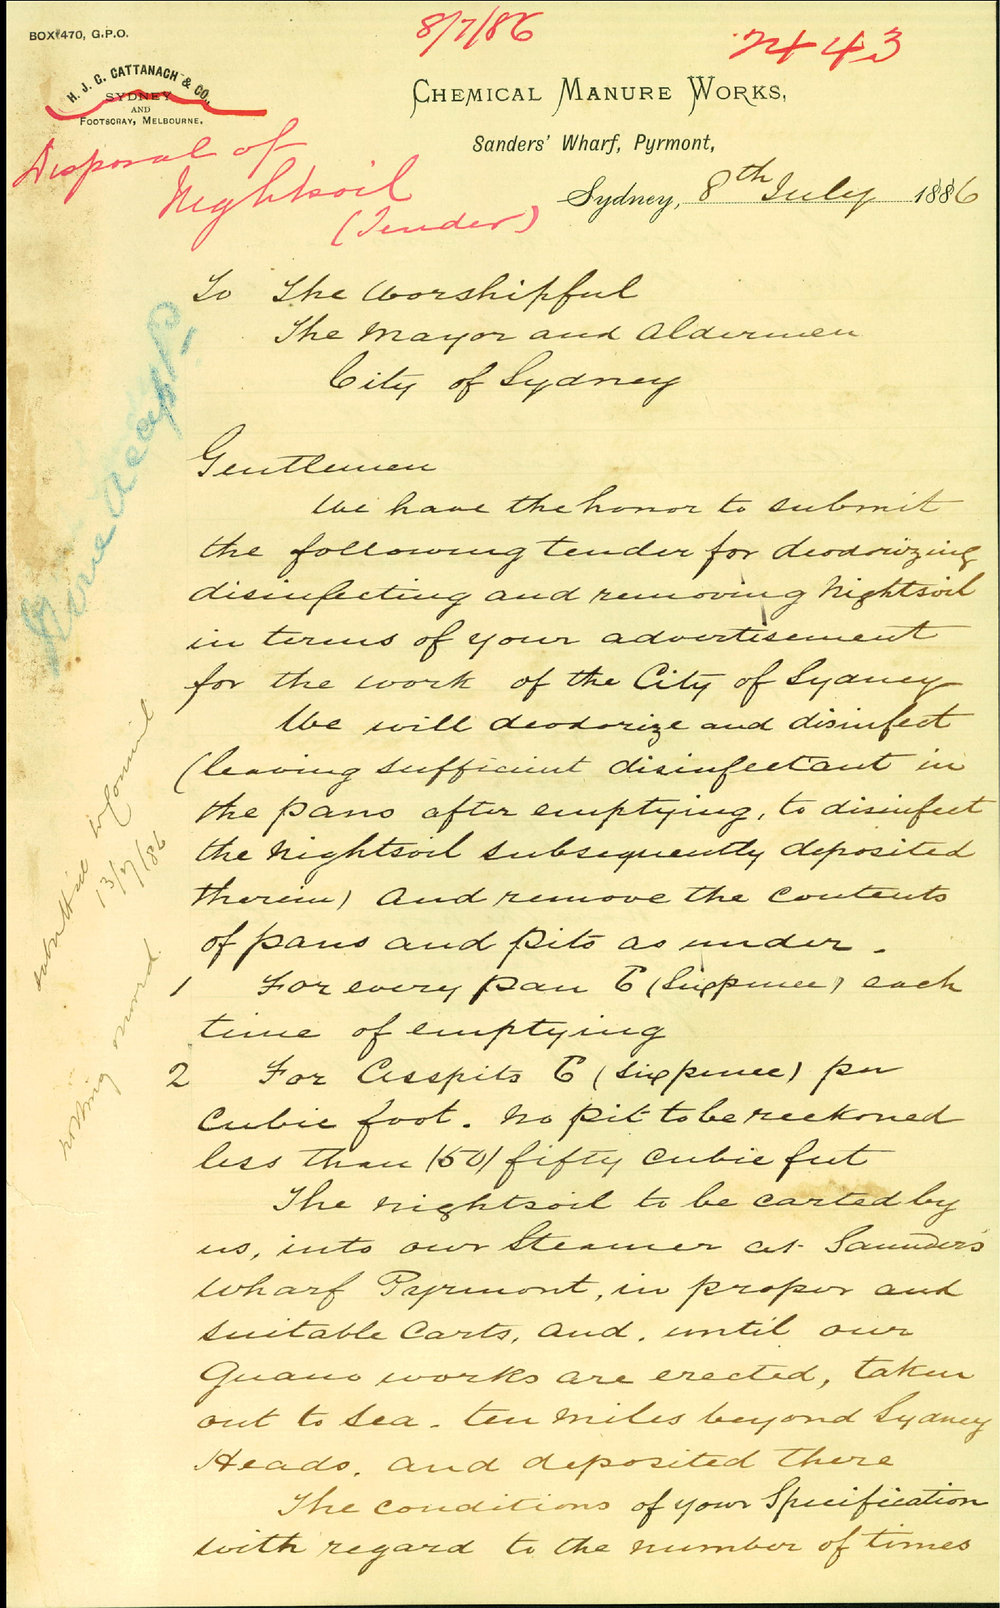 BOX 470, G.P.O.
8/7/86
2443
H. J. C. CATTANACH & CO.,
SYDNEY
AND
FOOTSCRAY, MELBOURNE.
CHEMICAL MANURE WORKS,
Sanders' Wharf, Pyrmont,
Sydney, 8th July 1886
Disposal of
Nightsoil
(Tender)
To The Worshipful
The Mayor and Aldermen
City of Sydney
Gentlemen
We have the honor to submit
the following tender for deodorizing
disinfecting and removing Nightsoil
in terms of your advertisement
for the work of the City of Sydney
We will deodorize and disinfect
(leaving sufficient disinfectant in
the pans after emptying, to disinfect
the Nightsoil subsequently deposited
therein) and remove the contents
of pans and pits as under.
1 For every pan 6 (Sixpence) each
time of emptying
2 For Cesspits 6 (Sixpence) per
Cubic foot. No pit to be reckoned
less than (50) fifty cubic feet
The nightsoil to be carted by
us, into our Steamer at Saunders
wharf Pyrmont, in proper and
suitable Carts, and, until our
Guano works are erected, taken
out to Sea - ten miles beyond Sydney
Heads, and deposited there
The conditions of your Specification
with regard to the number of times
submitted to Council
13/7/86
nothing moved